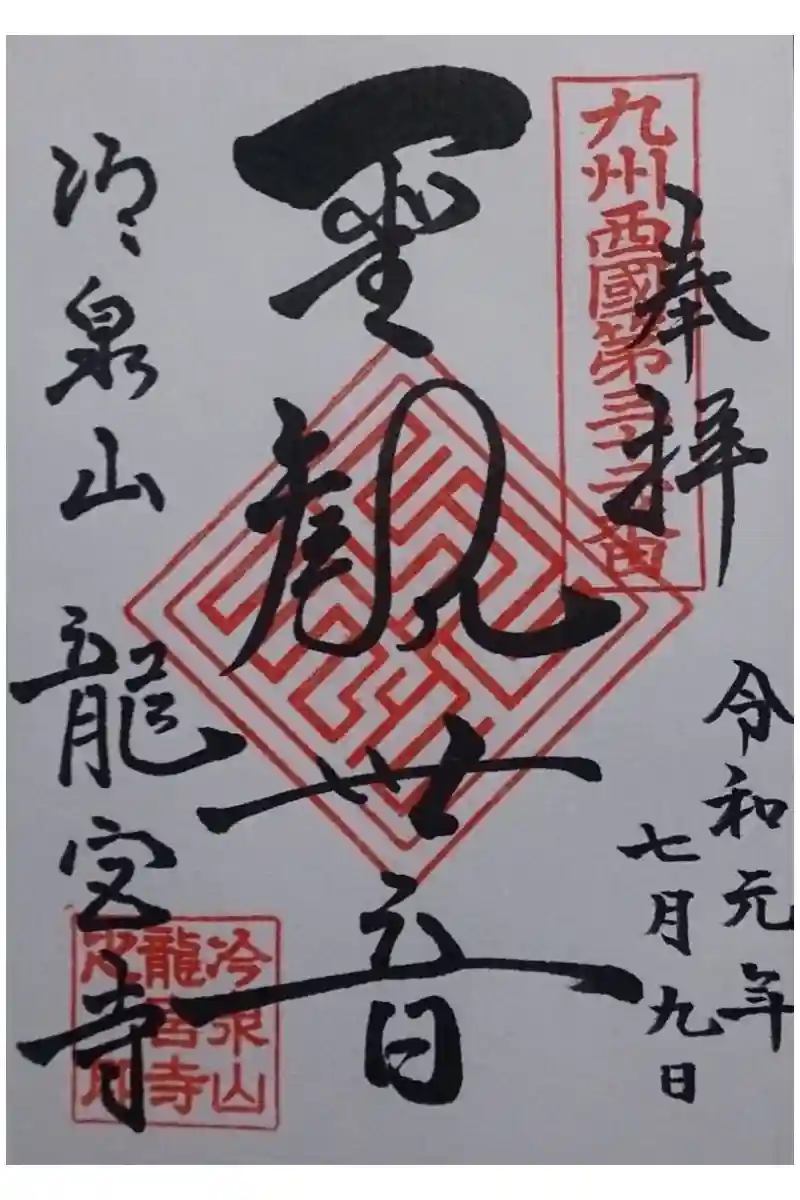 奉拝
九州西國第三十二番
令和元年
七月九日
聖観世音
冷泉山
龍宮寺
冷泉山
龍宮寺
印